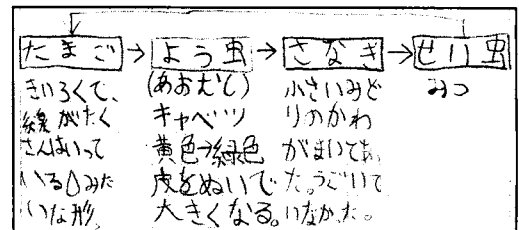 たまご→よう虫→さなぎ→せい虫
きいろくて、
線がたく
さんはいって
いる△みた
いな形。
(あおむし)
キャベツ
黄色→緑色
皮をぬいで
大きくなる。
小さいみど
りのかわ
がまいてあっ
た。うごいて
いなかった。
みつ